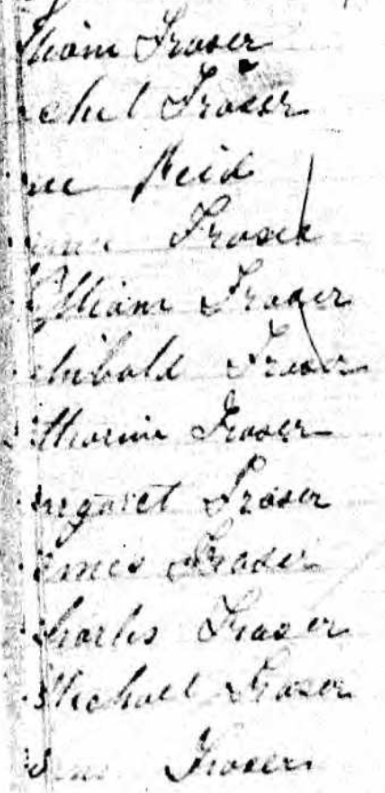 lliam Fraser
chel Fraser
ne Reid
Fraser
William Fraser
chibald Fraser
tharine Fraser
argaret Fraser
ames Fraser
harles Fraser
Michael Fraser
Fraser